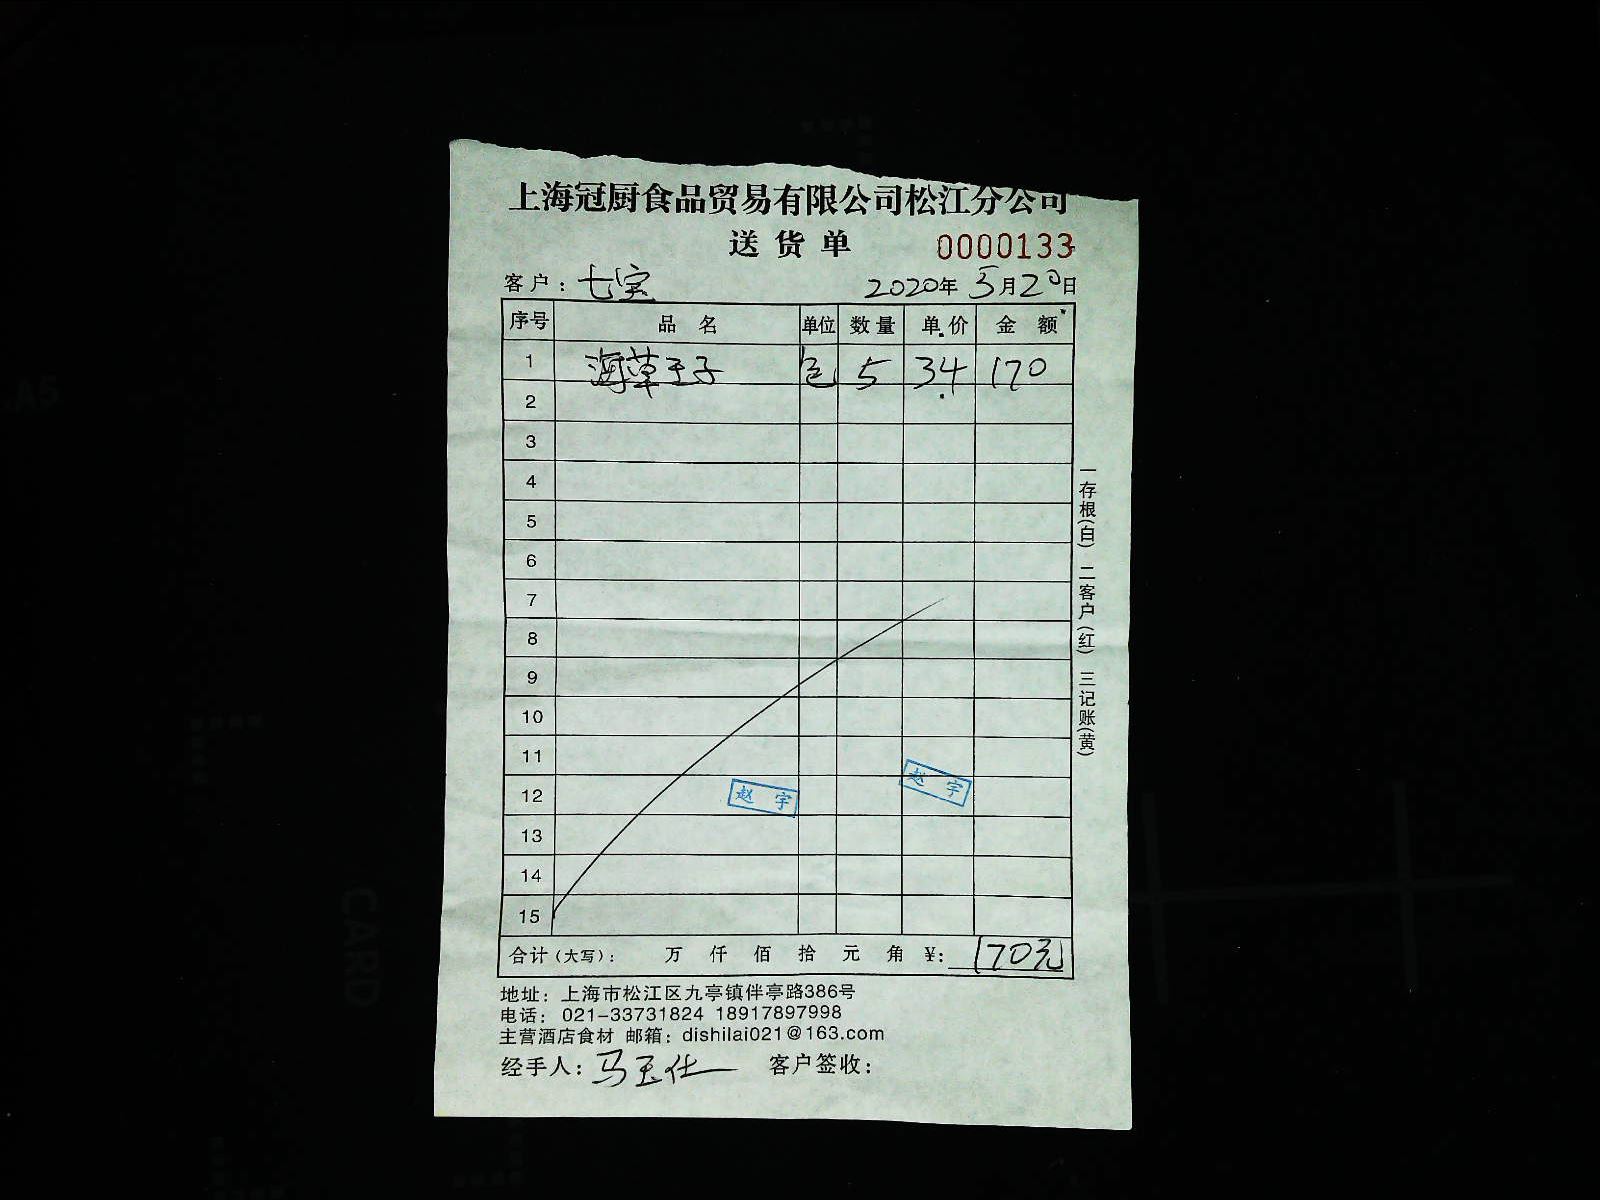 上海冠厨食品贸易有限公司松江分公司
送货单 0000133
客户：七宝 2020年5月20日
序号 品名 单位 数量 单价 金额
1 海草王子 包 5 34 170
2
3
4
5
6
7
8
9
10
11
12
13
14
15
赵宇 赵宇
合计（大写）： 万 仟 佰 拾 元 角 ¥: 170元
一存根(白) 二客户(红) 三记账(黄)
地址：上海市松江区九亭镇伴亭路386号
电话：021-33731824 18917897998
主营酒店食材 邮箱：dishilai021@163.com
经手人：马玉仕 客户签收：
A5
CARD